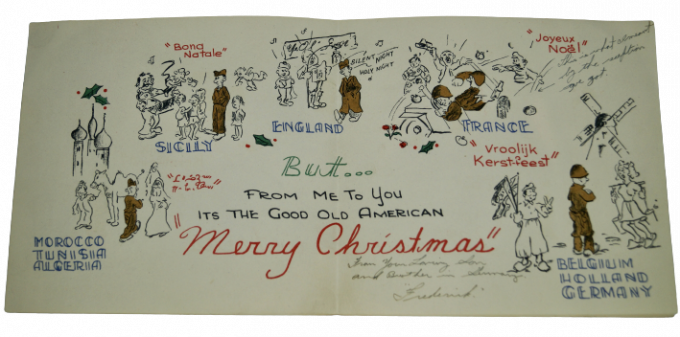 "Bona
Natale"
SICILY
SILENT NIGHT
HOLY NIGHT
ENGLAND
"Joyeux
Noël"
This is what meant
by the reception
we got
FRANCE
MOROCCO
TUNISIA
ALGERIA
"Vroolijk
Kerstfeest"
BELGIUM
HOLLAND
GERMANY
But...
FROM ME TO YOU
ITS THE GOOD OLD AMERICAN
"Merry Christmas"
From Your Loving Son
and Brother in Germany
"Frederick"